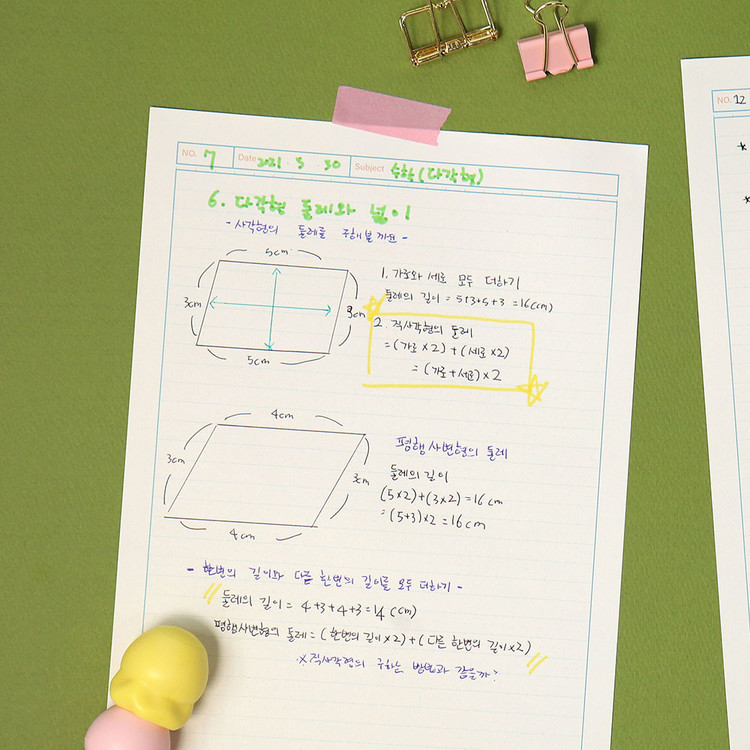 NO. 7 Date 2021 . 5 . 30 Subject 수학(다각형)
6. 다각형 둘레와 넓이
- 사각형의 둘레를 구해볼까요 -
5cm
3cm
3cm
5cm
1. 가로와 세로 모두 더하기
둘레의 길이 = 5+3+5+3 = 16(cm)
2. 직사각형의 둘레
= (가로×2) + (세로×2)
= (가로+세로)×2
4cm
3cm
3cm
4cm
평행사변형의 둘레
둘레의 길이
(5×2)+(3×2)=16cm
=(5+3)×2=16cm
- 한변의 길이와 다른 한변의 길이를 모두 더하기 -
둘레의 길이 = 4+3+4+3=14(cm)
평행사변형의 둘레=(한변의 길이×2)+(다른 한변의 길이×2)
※직사각형의 구하는 방법과 같을까?
NO. 12